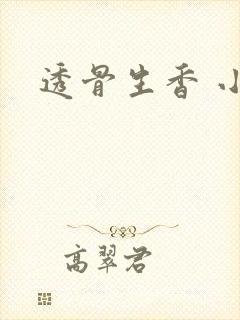 透骨生香 小
高翠君